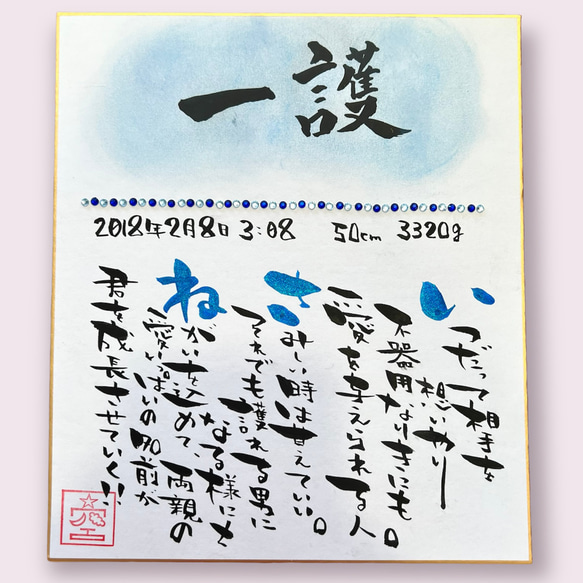 一護
2018年2月8日 3:08 50cm 3320g
いつだって相手を
想いやり
不器用なりきにも。
愛を与えられる人
さみしい時は甘えていい。
それでも護れる男に
なる様にと
ねがいを込めて、両親の
愛いっぱいの名前が
君を成長させていく!!